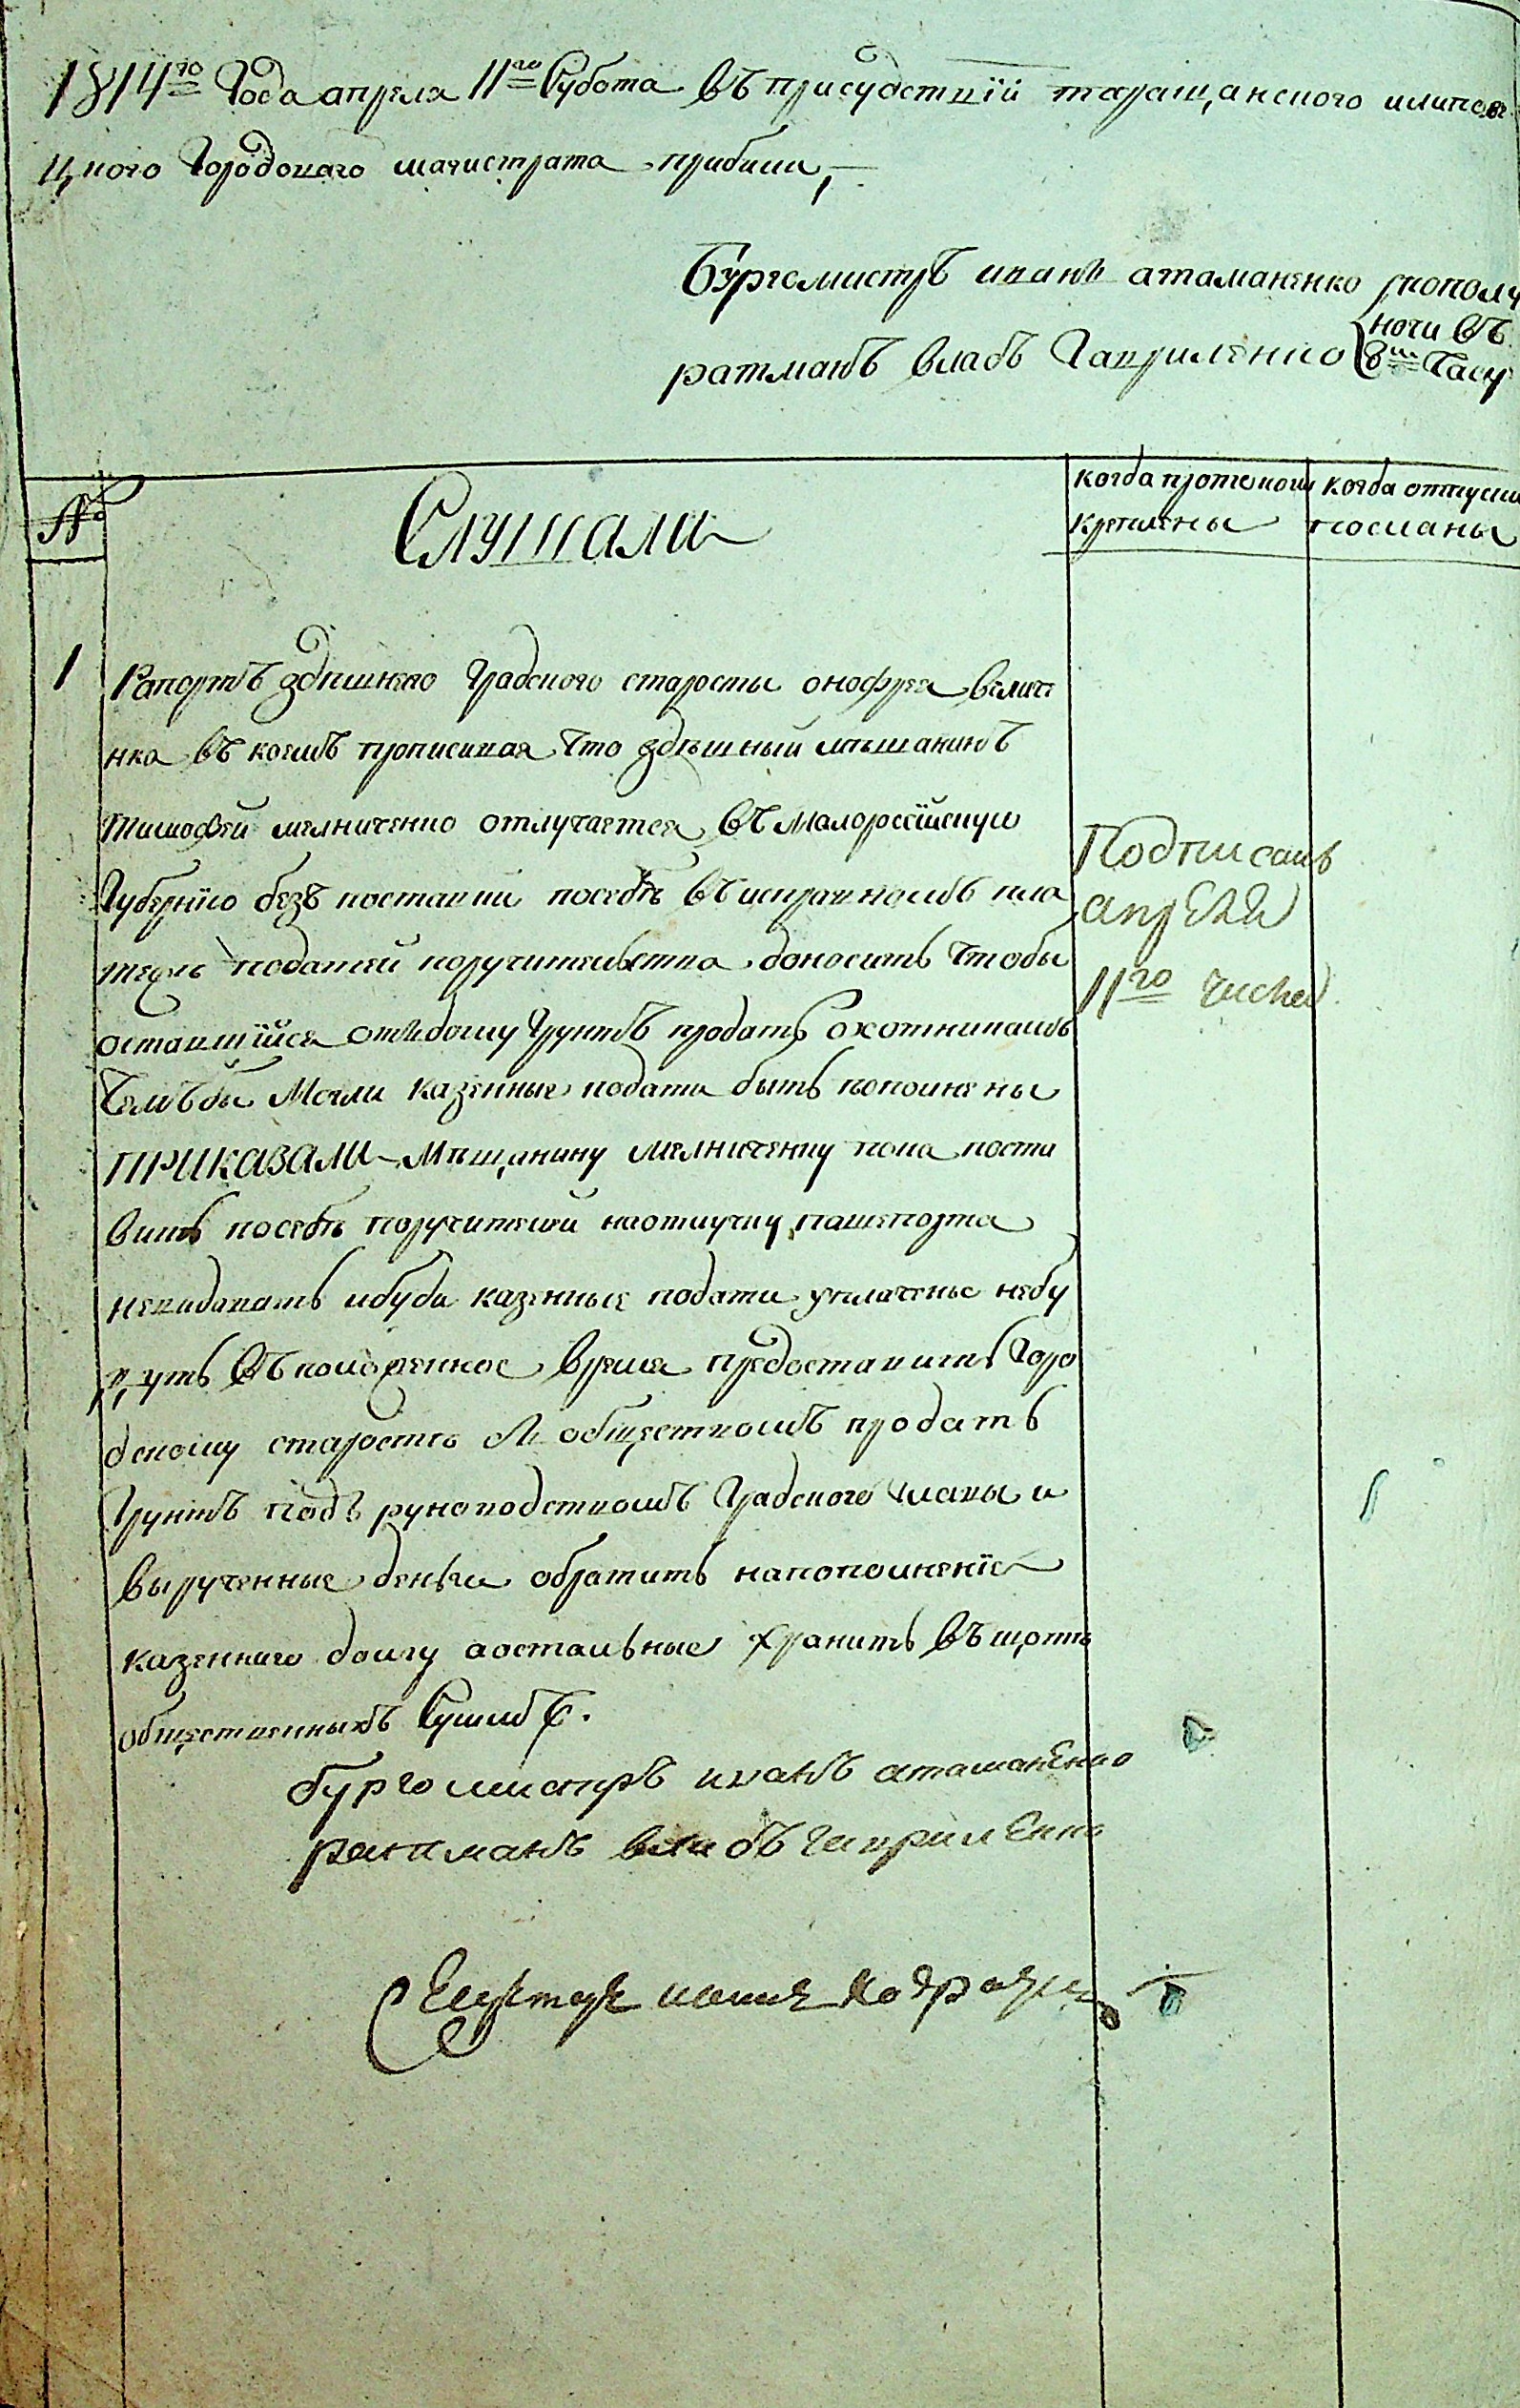 1814го Года апреля 11го Субота въ присудствїй таращанского иліпо
ц,кого Городоваго магистрата прибили,
Бургомистръ иванъ атаманенко
ратманъ владъ Гавриленко
спополу
ночи въ
8мъ Часу
№
Слушали
когда протокол
креплены
когда отпущ
посланы
1
Рапортъ здешнего Градского старосты онофрея величе
нка въ коемъ прописивая что здешный мещанинъ
тимофей мелниченко отлучается въ малоросїйскую
Губернїю безъ поставки посебѣ въ исправномъ пла
теже податей поручителства доноситъ чтобы
оставшїйся отнводму Грунтъ продать охотникамъ
Чемъ бы Могли казенные подати быть пополнены
ПРИКАЗАЛИ Мещ,анину мелниченку пока поста
витъ посебѣ поручителей наотлучку пашепорта
невидавать ибуди казенные подати уплачены небу
д,утъ въ положенное время предоставить Горо
дскому старосте собществомъ продать
Грунтъ подъ руководствомъ Градского Главы и
вырученные деньги обратить напополненїе
казенного долгу аостальные хранить въ щоте
общественныхъ Сумъ.
Подписанъ
апреля
11го числа
бургомистръ иванъ атаманенко
ратманъ владъ гавриленко
Секретарь